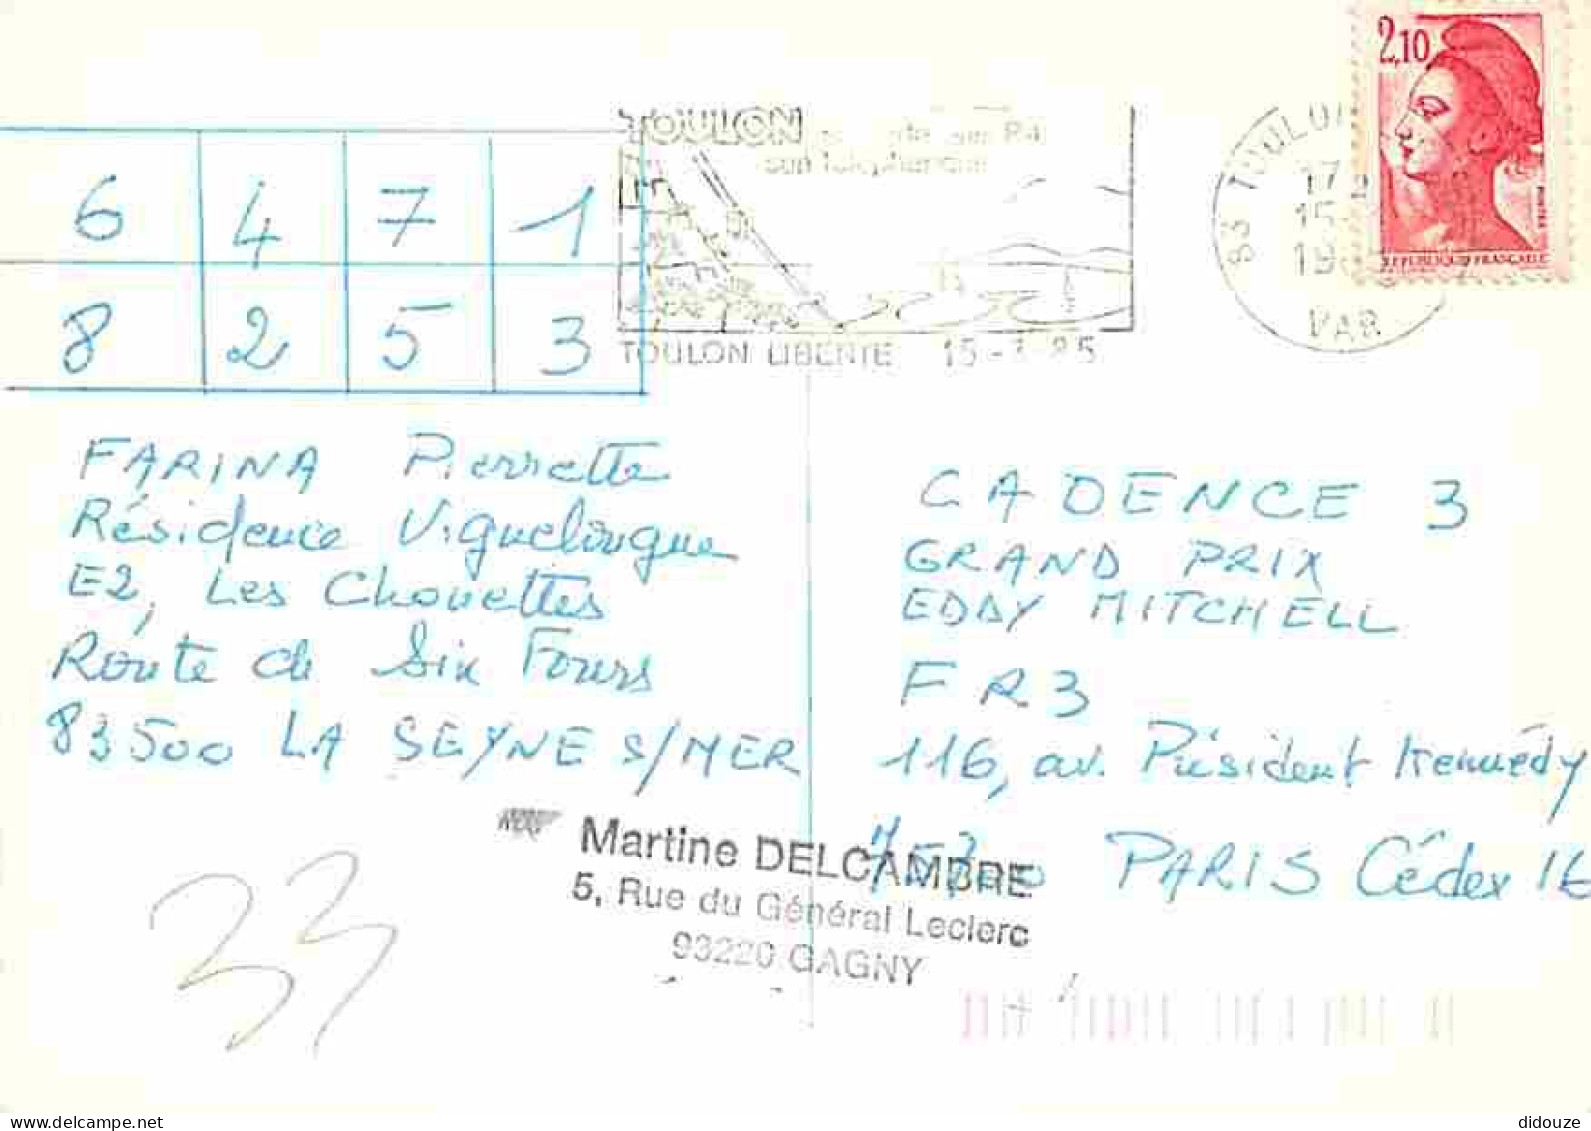 2,10
TOULON
TOULON LIBERTE 15-
83 TOULON
17
15
VAR
REPUBLIQUE FRANÇAISE
6 4 7 1
8 2 5 3
FARINA Pierrette
Résidence Viguelongue
E2, Les Chouettes
Route de Six Fours
83500 LA SEYNE S/MER
CADENCE 3
GRAND PRIX
EDDY MITCHELL
FR3
116, av. Président Kennédy
PARIS Cédex 16
Martine DELCAMBRE
5, Rue du Général Leclerc
93220 GAGNY
33
www.delcampe.net
didouze